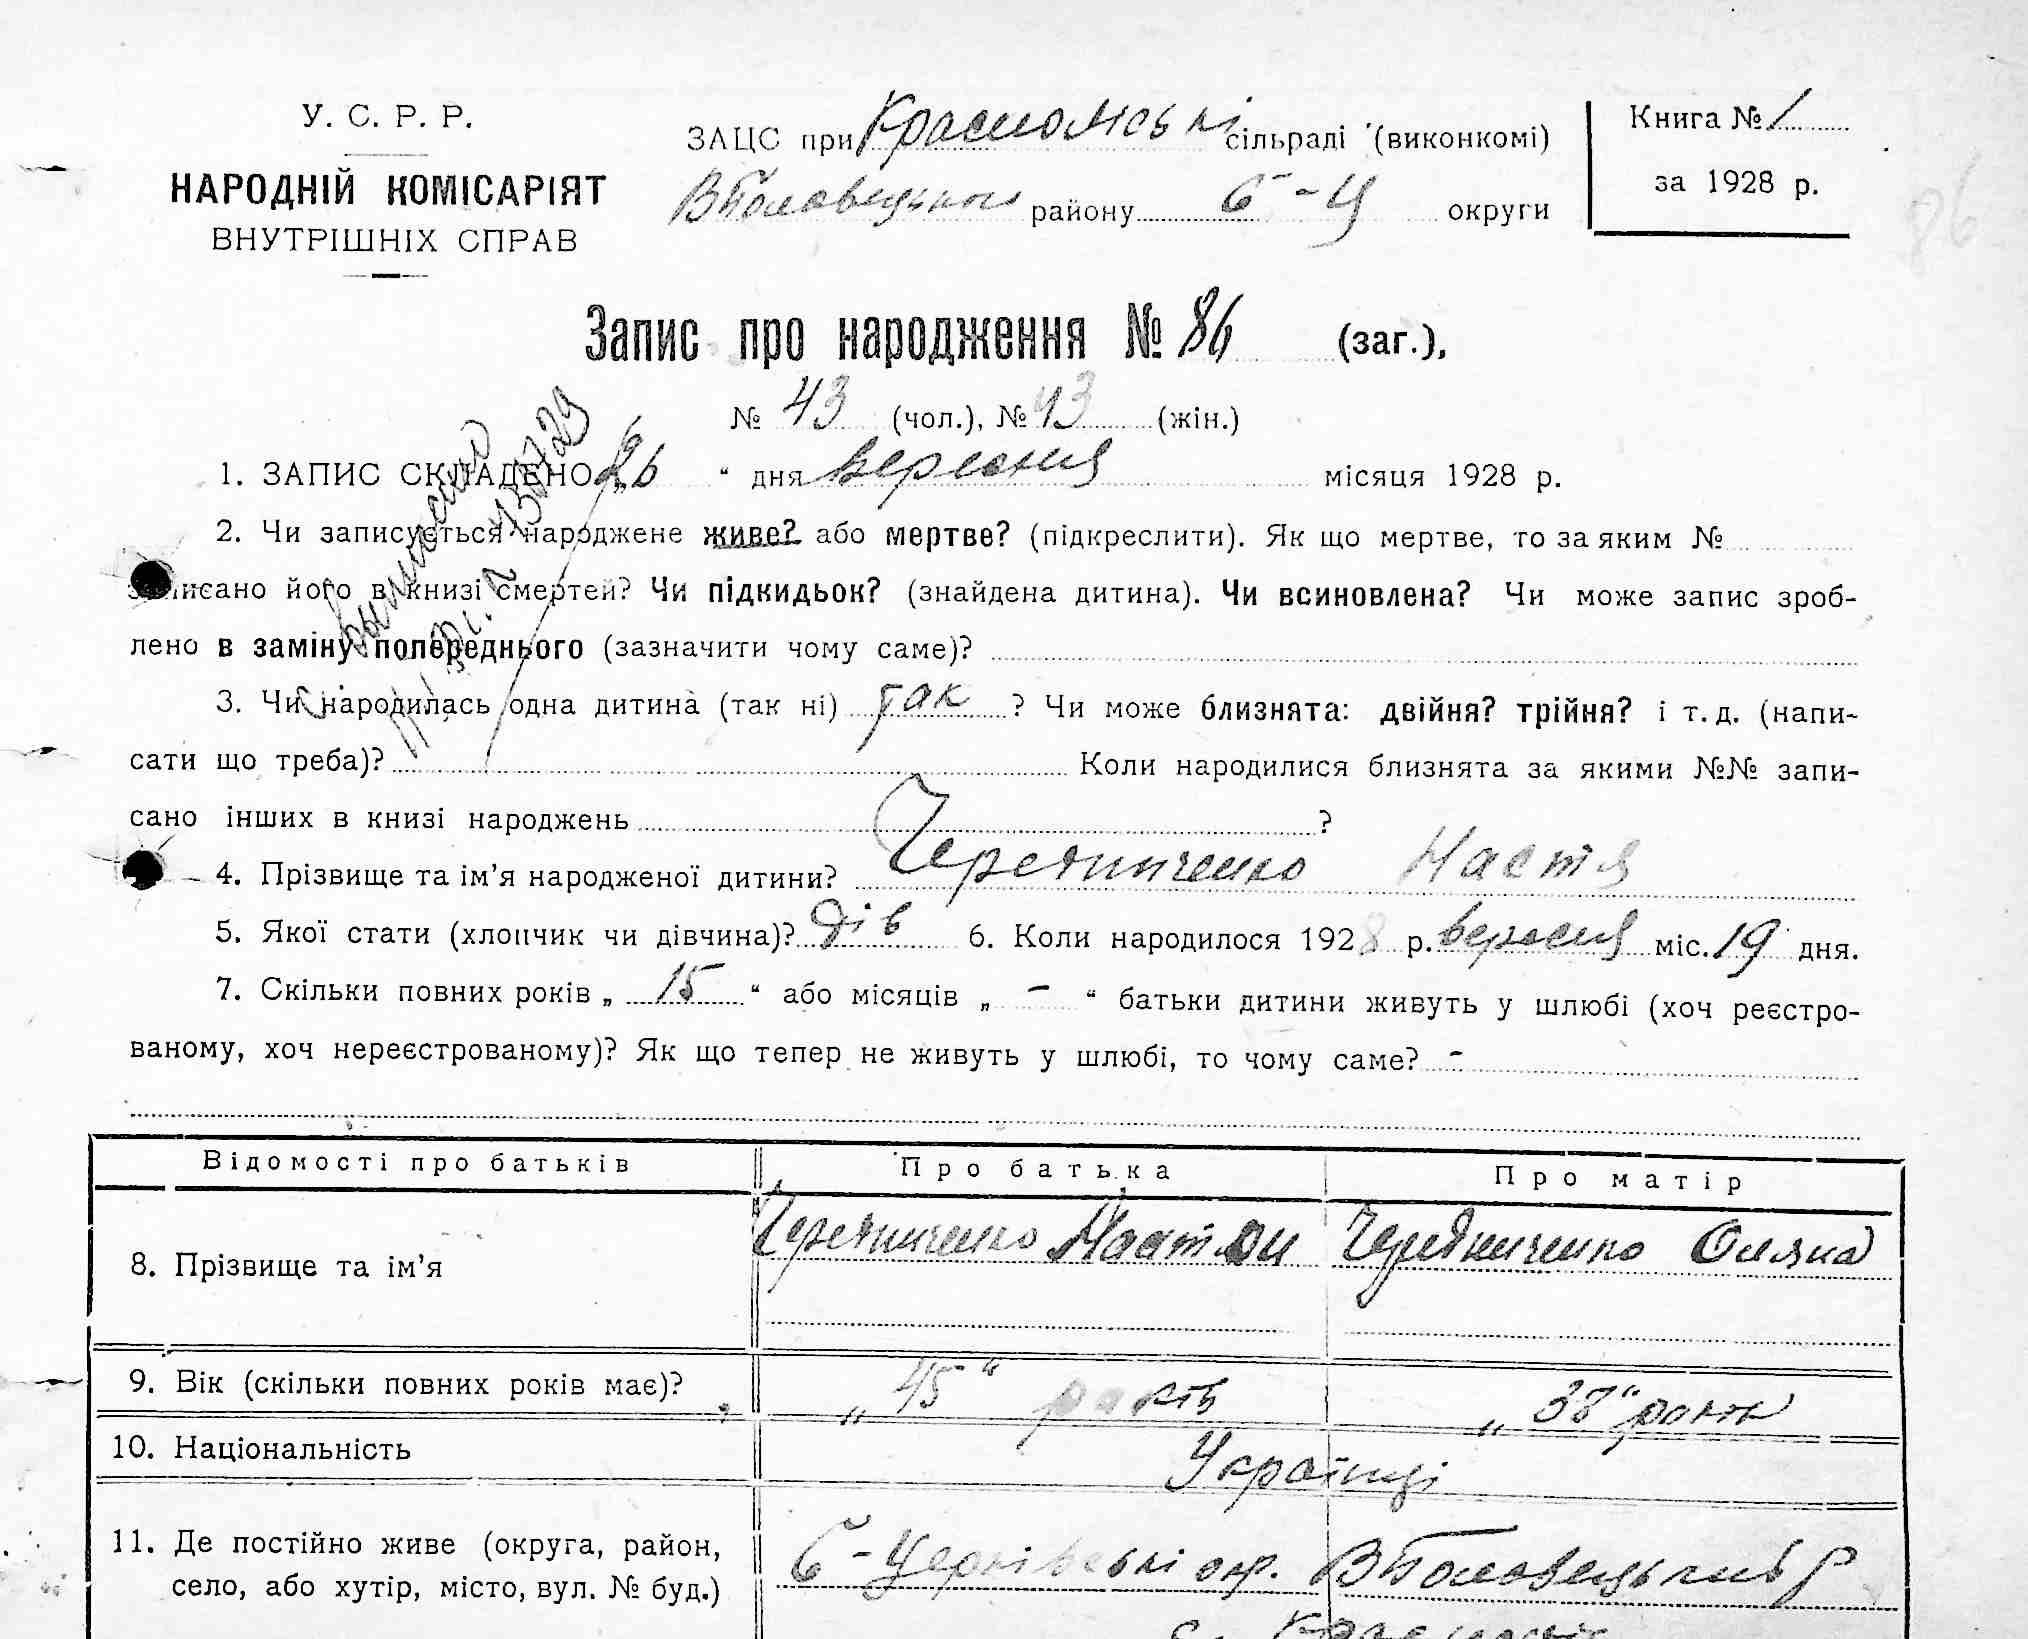 У. С. Р. Р.
НАРОДНІЙ КОМІСАРІЯТ
ВНУТРІШНІХ СПРАВ
ЗАЦС при сільраді (виконкомі)
району Б-Ц округи
Книга № 1
за 1928 р.
86
Запис про народження № 86 (заг.),
№ 43 (чол.), № 43 (жін.)
1. ЗАПИС СКЛАДЕНО „26 “ дня вересня місяця 1928 р.
2. Чи записується народжене живе? або мертве? (підкреслити). Як що мертве, то за яким №
записано його в книзі смертей? Чи підкидьок? (знайдена дитина). Чи всиновлена? Чи може запис зроб-
лено в заміну попереднього (зазначити чому саме)?
3. Чи народилась одна дитина (так ні) так ? Чи може близнята: двійня? трійня? і т. д. (напи-
сати що треба)? Коли народилися близнята за якими №№ запи-
сано інших в книзі народжень ?
4. Прізвище та ім’я народженої дитини? Чередниченко Настя
5. Якої стати (хлопчик чи дівчина)? дів 6. Коли народилося 1928 р. вересня міс. 19 дня.
7. Скільки повних років „ 15 “ або місяців „ - “ батьки дитини живуть у шлюбі (хоч реєстро-
ваному, хоч нереєстрованому)? Як що тепер не живуть у шлюбі, то чому саме? -
Відомості про батьків Про батька Про матір
8. Прізвище та ім’я Чередниченко Чередниченко Оляна
9. Вік (скільки повних років має)? „ 45 “ років „ 38 “ роки
10. Національність Українці
11. Де постійно живе (округа, район, Б-Церківські окр. В Половецький р
село, або хутір, місто, вул. № буд.) с.